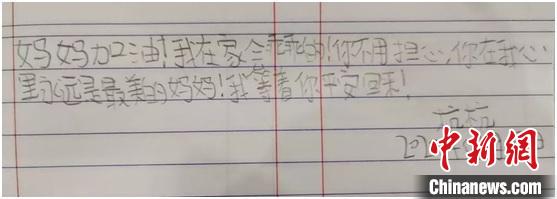 妈妈加油！我在家会乖乖的！你不用担心，你在我心
里永远是最美的妈妈！我等着你平安回来！
杭杭
202
中新网
Chinanews.com